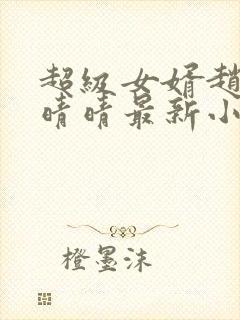 超級女婿趙
晴晴最新小
橙墨沫